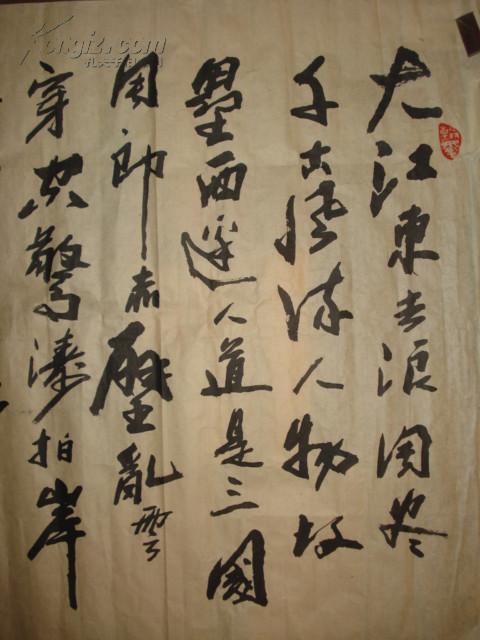 大江東去浪淘尽
千古風流人物故
壘西邊人道是三國
周郎赤壁亂雲
穿空驚濤拍岸
Kongfz.com